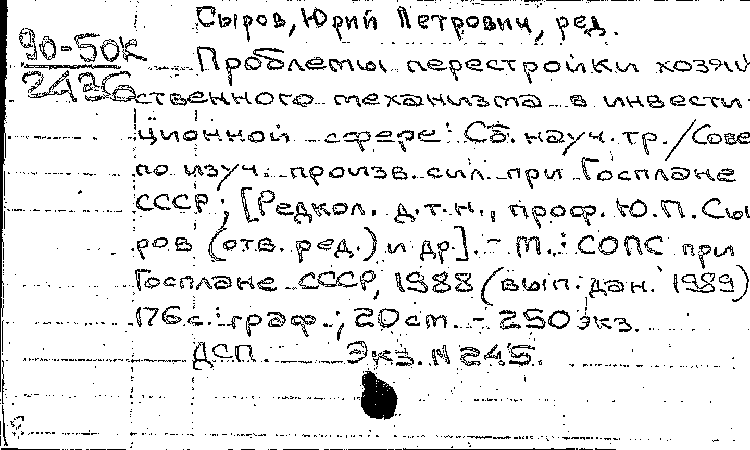 Сыров, Юрий Петрович, ред.
90-50к
2436
Проблемы перестройки хозяй
ственного механизма в инвести-
ционной сфере: Сб. науч. тр. / Сове
по изуч. произв. сил при Госплане
СССР; [Редкол. д.т.н., проф. Ю.П. Сы
ров (отв. ред.) и др]. - М.: СОПС при
Госплане СССР, 1988 (вып. дан. 1989)
176 с.: граф.; 20 см. - 250 экз.
ДСП. Экз. N 245.